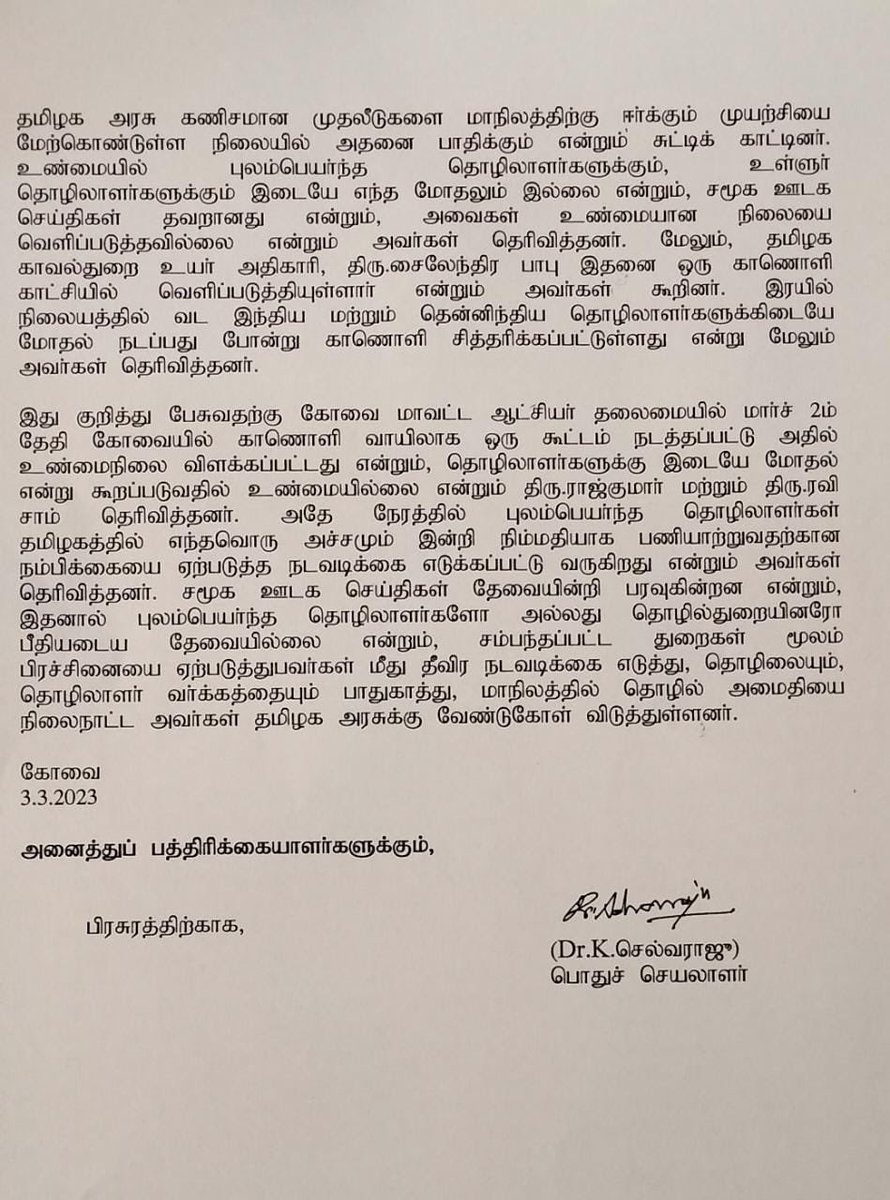 தமிழக அரசு கணிசமான முதலீடுகளை மாநிலத்திற்கு ஈர்க்கும் முயற்சியை
மேற்கொண்டுள்ள நிலையில் அதனை பாதிக்கும் என்றும் சுட்டிக் காட்டினர்.
உண்மையில் புலம்பெயர்ந்த தொழிலாளர்களுக்கும், உள்ளுர்
தொழிலாளர்களுக்கும் இடையே எந்த மோதலும் இல்லை என்றும், சமூக ஊடக
செய்திகள் தவறானது என்றும், அவைகள் உண்மையான நிலையை
வெளிப்படுத்தவில்லை என்றும் அவர்கள் தெரிவித்தனர். மேலும், தமிழக
காவல்துறை உயர் அதிகாரி, திரு.சைலேந்திர பாபு இதனை ஒரு காணொளி
காட்சியில் வெளிப்படுத்தியுள்ளார் என்றும் அவர்கள் கூறினர். இரயில்
நிலையத்தில் வட இந்திய மற்றும் தென்னிந்திய தொழிலாளர்களுக்கிடையே
மோதல் நடப்பது போன்று காணொளி சித்தரிக்கப்பட்டுள்ளது என்று மேலும்
அவர்கள் தெரிவித்தனர்.
இது குறித்து பேசுவதற்கு கோவை மாவட்ட ஆட்சியர் தலைமையில் மார்ச் 2ம்
தேதி கோவையில் காணொளி வாயிலாக ஒரு கூட்டம் நடத்தப்பட்டு அதில்
உண்மைநிலை விளக்கப்பட்டது என்றும், தொழிலாளர்களுக்கு இடையே மோதல்
என்று கூறப்படுவதில் உண்மையில்லை என்றும் திரு.ராஜ்குமார் மற்றும் திரு.ரவி
சாம் தெரிவித்தனர். அதே நேரத்தில் புலம்பெயர்ந்த தொழிலாளர்கள்
தமிழகத்தில் எந்தவொரு அச்சமும் இன்றி நிம்மதியாக பணியாற்றுவதற்கான
நம்பிக்கையை ஏற்படுத்த நடவடிக்கை எடுக்கப்பட்டு வருகிறது என்றும் அவர்கள்
தெரிவித்தனர். சமூக ஊடக செய்திகள் தேவையின்றி பரவுகின்றன என்றும்,
இதனால் புலம்பெயர்ந்த தொழிலாளர்களோ அல்லது தொழில்துறையினரோ
பீதியடைய தேவையில்லை என்றும், சம்பந்தப்பட்ட துறைகள் மூலம்
பிரச்சினையை ஏற்படுத்துபவர்கள் மீது தீவிர நடவடிக்கை எடுத்து, தொழிலையும்,
தொழிலாளர் வர்க்கத்தையும் பாதுகாத்து, மாநிலத்தில் தொழில் அமைதியை
நிலைநாட்ட அவர்கள் தமிழக அரசுக்கு வேண்டுகோள் விடுத்துள்ளனர்.
கோவை
3.3.2023
அனைத்துப் பத்திரிக்கையாளர்களுக்கும்,
பிரசுரத்திற்காக,
(Dr.K.செல்வராஜு)
பொதுச் செயலாளர்